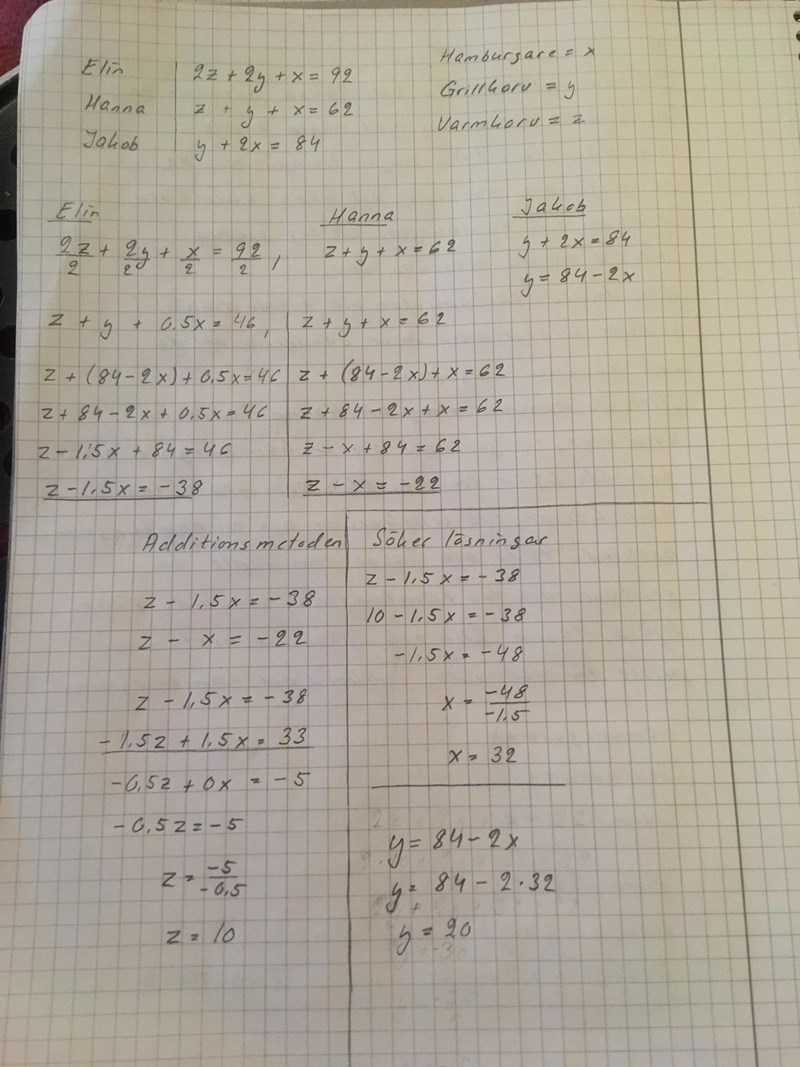 Elin 2z + 2y + x = 92
Hanna z + y + x = 62
Jakob y + 2x = 84
Hamburgare = x
Grillkorv = y
Varmkorv = z
Elin
2z/2 + 2y/2 + x/2 = 92/2,
z + y + 0.5x = 46,
z + (84 - 2x) + 0.5x = 46
z + 84 - 2x + 0.5x = 46
z - 1.5x + 84 = 46
z - 1.5x = -38
Hanna
z + y + x = 62
z + y + x = 62
z + (84 - 2x) + x = 62
z + 84 - 2x + x = 62
z - x + 84 = 62
z - x = -22
Jakob
y + 2x = 84
y = 84 - 2x
Additionsmetoden
z - 1.5x = -38
z - x = -22
z - 1.5x = -38
-1.5z + 1.5x = 33
-0,5z + 0x = -5
-0,5z = -5
z = -5/-0.5
z = 10
Söker lösningar
z - 1.5x = -38
10 - 1.5x = -38
-1.5x = -48
x = -48/-1.5
x = 32
y = 84 - 2x
y = 84 - 2·32
y = 20